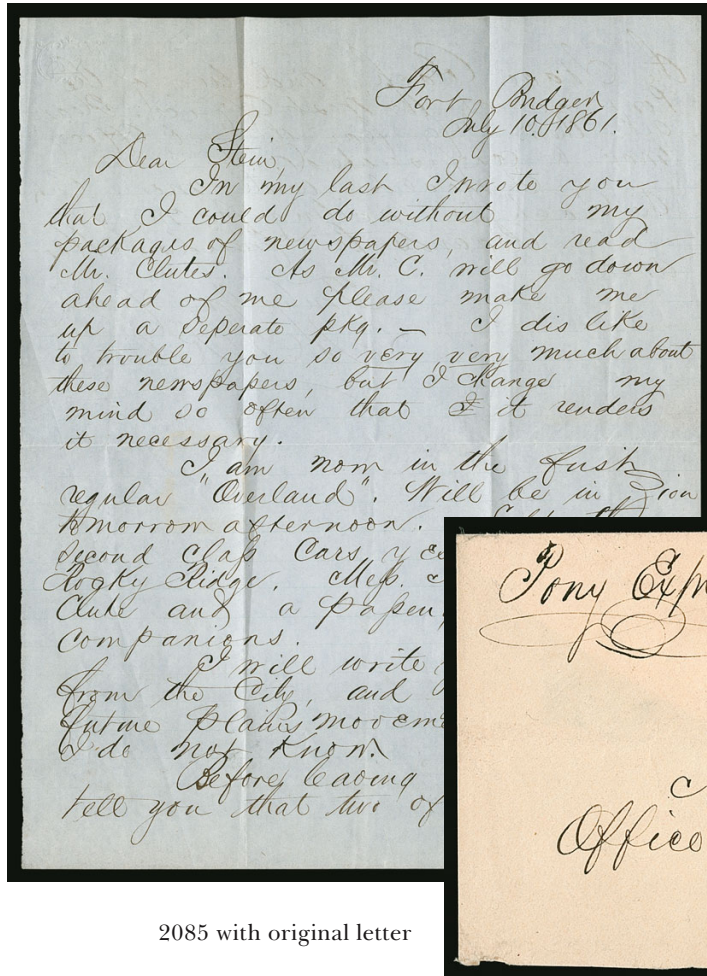 Fort Bridger
July 10. 1861.
Dear Stein,
In my last I wrote you
that I could do without my
packages of newspapers, and read
Mr. Clutes. As Mr. C. will go down
ahead of me please make me
up a Seperate pkg. — I dis like
to trouble you so very very much about
these newspapers, but I change my
mind so often that it renders
it necessary.
I am now in the first
regular "Overland". Will be in Zion
tomorrow afternoon.
Second Class Cars,
Rocky Ridge. Mess.
Clute and a
companions.
I will write
from the City, and
future plans
I do not know.
Before leaving
tell you that two of
Pony
Office
2085 with original letter